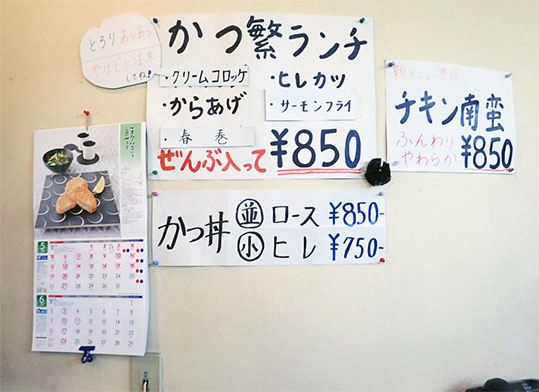 とろりあつあつ
やけどに注意
してね!
かつ繁ランチ
・クリームコロッケ
・ヒレカツ
・からあげ
・サーモンフライ
・春巻
ぜんぶ入って ¥850
新メニュー登場!
チキン南蛮
ふんわり
やわらか
¥850
かつ丼
並 ロース ¥850-
小 ヒレ ¥750-
5
6